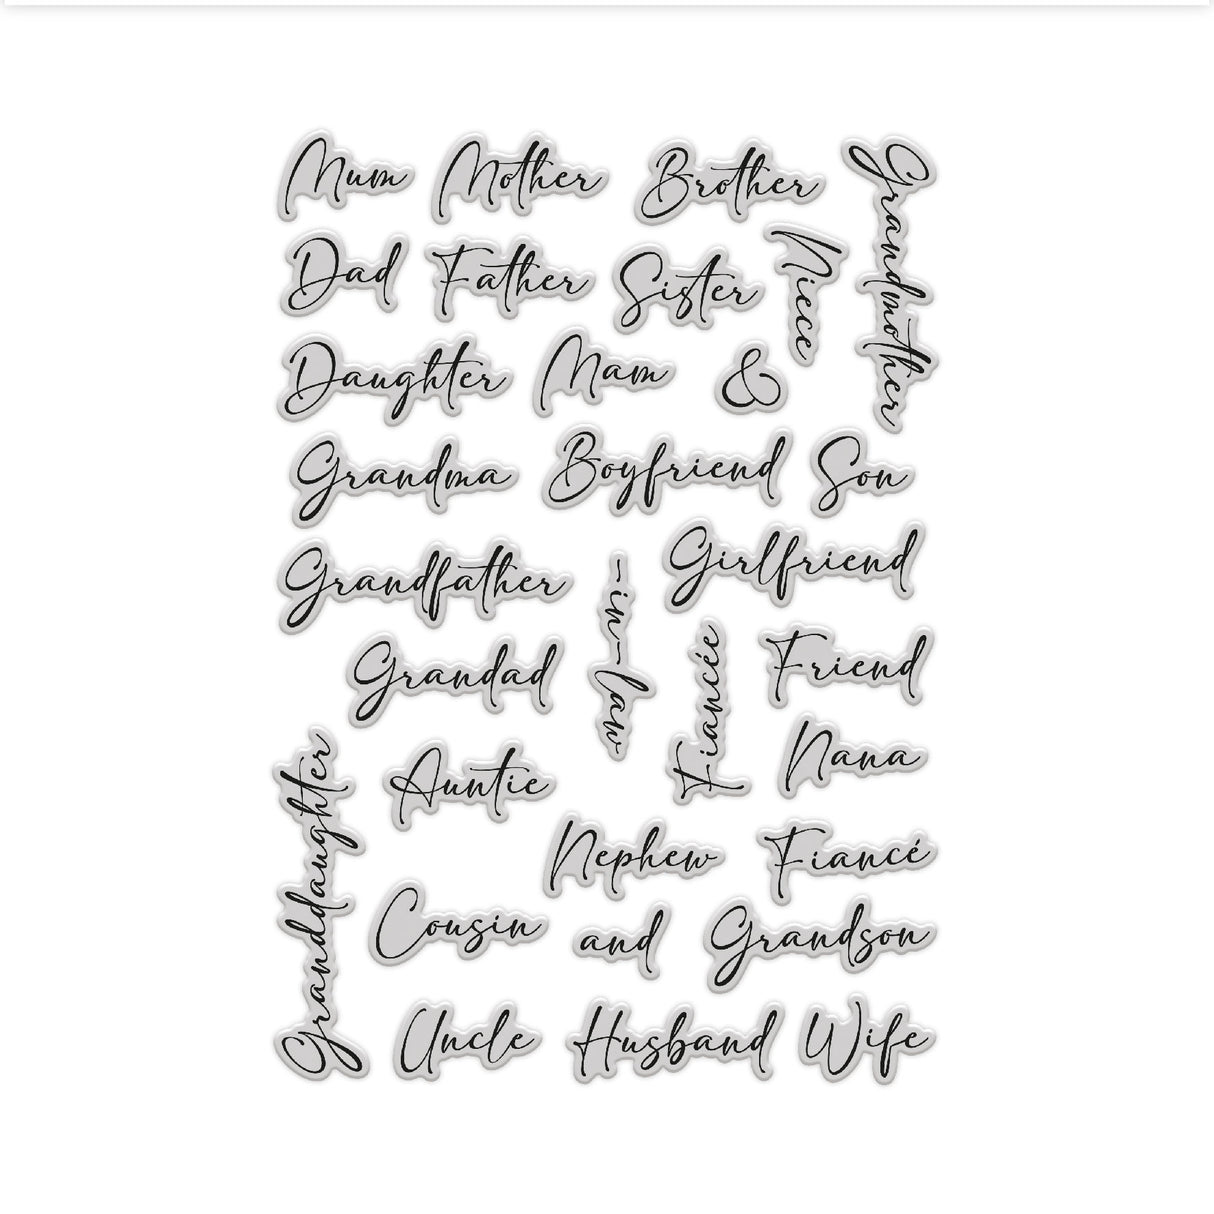 Mum Mother Brother
Grandmother
Dad Father Sister
Niece
Daughter Mam &
Grandma Boyfriend Son
Grandfather
-in-law
Girlfriend
Grandad
Fiancée
Friend
Granddaughter
Auntie
Nana
Nephew Fiancé
Cousin and Grandson
Uncle Husband Wife